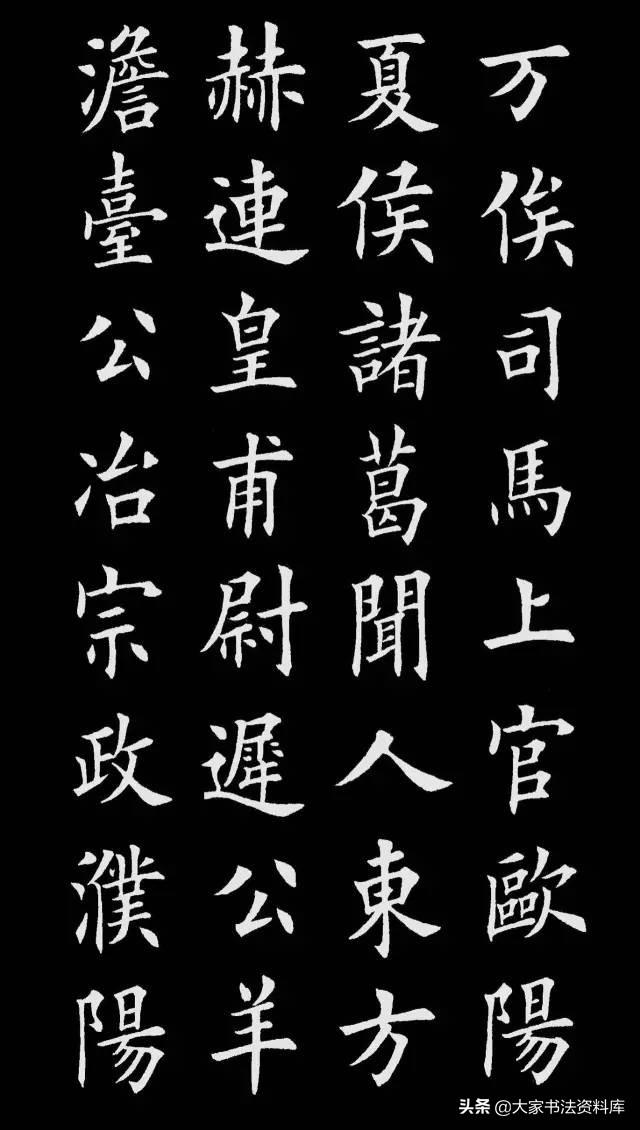 万俟司馬上官歐陽
夏侯諸葛聞人東方
赫連皇甫尉遲公羊
澹臺公冶宗政濮陽
头条 @大家书法资料库